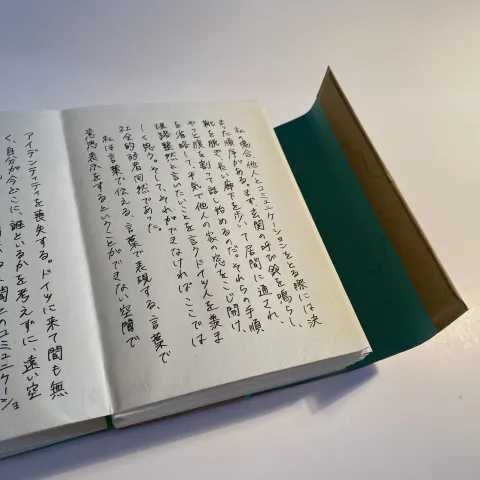 私の場合、他人とコミュニケーションをとる際には決
まった順序がある。まず玄関の呼び鈴を鳴らし、
靴を脱ぎ、長い廊下を歩いて居間に通され、
やっと腹を割って話し始めるのだ。それらの手順
を省略して、平気で他人の家の窓をこじ開け、
理路整然と言いたいことを言うドイツ人を羨ま
しく思う。そして、それができなければここでは
社会的弱者同然であった。
私は言葉で伝える、言葉で表現する、言葉で
意思表示をするということができない空間で
アイデンティティを喪失する。ドイツに来て間も無
く、自分が今どこに、誰といるかを考えずに、遠い空
間とのコミュニケーショ